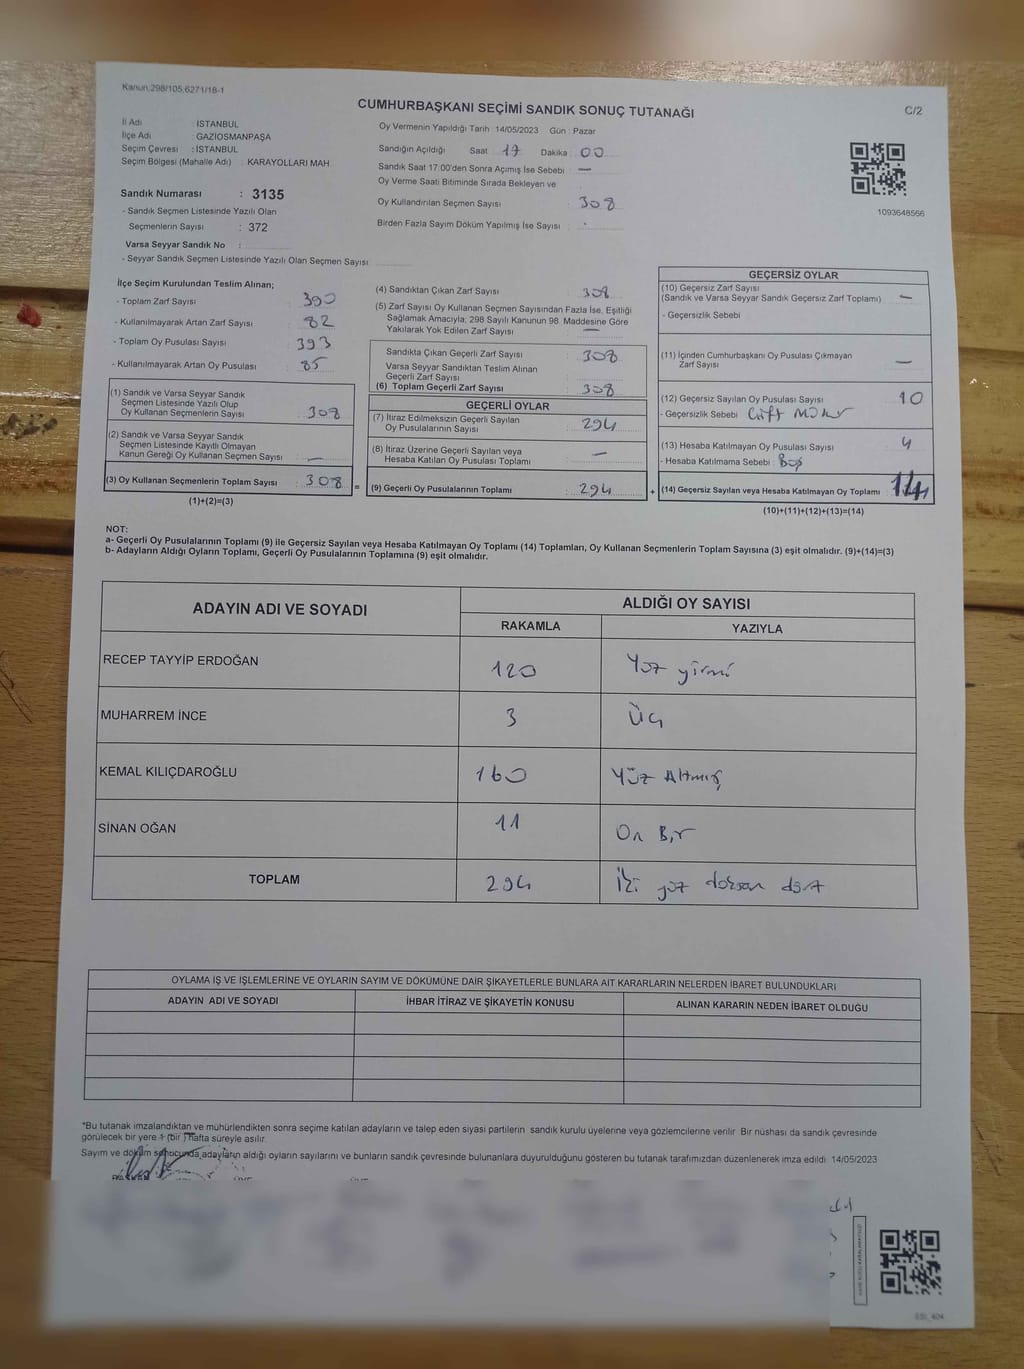 Kanun:298/105,6271/18-1
CUMHURBAŞKANI SEÇİMİ SANDIK SONUÇ TUTANAĞI
C/2
İl Adı : İSTANBUL
İlçe Adı : GAZİOSMANPAŞA
Seçim Çevresi : İSTANBUL
Seçim Bölgesi (Mahalle Adı) : KARAYOLLARI MAH.
Sandık Numarası : 3135
- Sandık Seçmen Listesinde Yazılı Olan
Seçmenlerin Sayısı : 372
Varsa Seyyar Sandık No :
- Seyyar Sandık Seçmen Listesinde Yazılı Olan Seçmen Sayısı
Oy Vermenin Yapıldığı Tarih : 14/05/2023 Gün : Pazar
Sandığın Açıldığı Saat 17 Dakika : 00
Sandık Saat 17:00'den Sonra Açımış İse Sebebi : —
Oy Verme Saati Bitiminde Sırada Bekleyen ve
Oy Kullandırılan Seçmen Sayısı : 308
Birden Fazla Sayım Döküm Yapılmış İse Sayısı :
1093648566
İlçe Seçim Kurulundan Teslim Alınan;
- Toplam Zarf Sayısı : 390
- Kullanılmayarak Artan Zarf Sayısı : 82
- Toplam Oy Pusulası Sayısı : 393
- Kullanılmayarak Artan Oy Pusulası : 85
(1) Sandık ve Varsa Seyyar Sandık
Seçmen Listesinde Yazılı Olup
Oy Kullanan Seçmenlerin Sayısı : 308
(2) Sandık ve Varsa Seyyar Sandık
Seçmen Listesinde Kayıtlı Olmayan
Kanun Gereği Oy Kullanan Seçmen Sayısı : —
(3) Oy Kullanan Seçmenlerin Toplam Sayısı : 308 =
(1)+(2)=(3)
(4) Sandıktan Çıkan Zarf Sayısı : 308
(5) Zarf Sayısı Oy Kullanan Seçmen Sayısından Fazla İse, Eşitliği
Sağlamak Amacıyla; 298 Sayılı Kanunun 98. Maddesine Göre
Yakılarak Yok Edilen Zarf Sayısı : —
Sandıkta Çıkan Geçerli Zarf Sayısı : 308
Varsa Seyyar Sandıktan Teslim Alınan
Geçerli Zarf Sayısı :
(6) Toplam Geçerli Zarf Sayısı : 308
GEÇERLİ OYLAR
(7) İtiraz Edilmeksizin Geçerli Sayılan
Oy Pusulalarının Sayısı : 294
(8) İtiraz Üzerine Geçerli Sayılan veya
Hesaba Katılan Oy Pusulası Toplamı : —
(9) Geçerli Oy Pusulalarının Toplamı : 294 +
GEÇERSİZ OYLAR
(10) Geçersiz Zarf Sayısı
(Sandık ve Varsa Seyyar Sandık Geçersiz Zarf Toplamı) : —
- Geçersizlik Sebebi
(11) İçinden Cumhurbaşkanı Oy Pusulası Çıkmayan
Zarf Sayısı : —
(12) Geçersiz Sayılan Oy Pusulası Sayısı : 10
- Geçersizlik Sebebi : Çift Mühür
(13) Hesaba Katılmayan Oy Pusulası Sayısı : 4
- Hesaba Katılmama Sebebi : Boş
(14) Geçersiz Sayılan veya Hesaba Katılmayan Oy Toplamı : 14
(10)+(11)+(12)+(13)=(14)
NOT:
a- Geçerli Oy Pusulalarının Toplamı (9) ile Geçersiz Sayılan veya Hesaba Katılmayan Oy Toplamı (14) Toplamları, Oy Kullanan Seçmenlerin Toplam Sayısına (3) eşit olmalıdır. (9)+(14)=(3)
b- Adayların Aldığı Oyların Toplamı, Geçerli Oy Pusulalarının Toplamına (9) eşit olmalıdır.
ADAYIN ADI VE SOYADI
ALDIĞI OY SAYISI
RAKAMLA YAZIYLA
RECEP TAYYİP ERDOĞAN 120 Yüz yirmi
MUHARREM İNCE 3 Üç
KEMAL KILIÇDAROĞLU 160 Yüz Altmış
SİNAN OĞAN 11 On Bir
TOPLAM 294 İki yüz doksan dört
OYLAMA İŞ VE İŞLEMLERİNE VE OYLARIN SAYIM VE DÖKÜMÜNE DAİR ŞİKAYETLERLE BUNLARA AİT KARARLARIN NELERDEN İBARET BULUNDUKLARI
ADAYIN ADI VE SOYADI İHBAR İTİRAZ VE ŞİKAYETİN KONUSU ALINAN KARARIN NEDEN İBARET OLDUĞU
*Bu tutanak imzalandıktan ve mühürlendikten sonra seçime katılan adayların ve talep eden siyasi partilerin sandık kurulu üyelerine veya gözlemcilerine verilir. Bir nüshası da sandık çevresinde
görülecek bir yere 1 (bir ) hafta süreyle asılır.
Sayım ve döküm sonucunda adayların aldığı oyların sayılarını ve bunların sandık çevresinde bulunanlara duyurulduğunu gösteren bu tutanak tarafımızdan düzenlenerek imza edildi. 14/05/2023